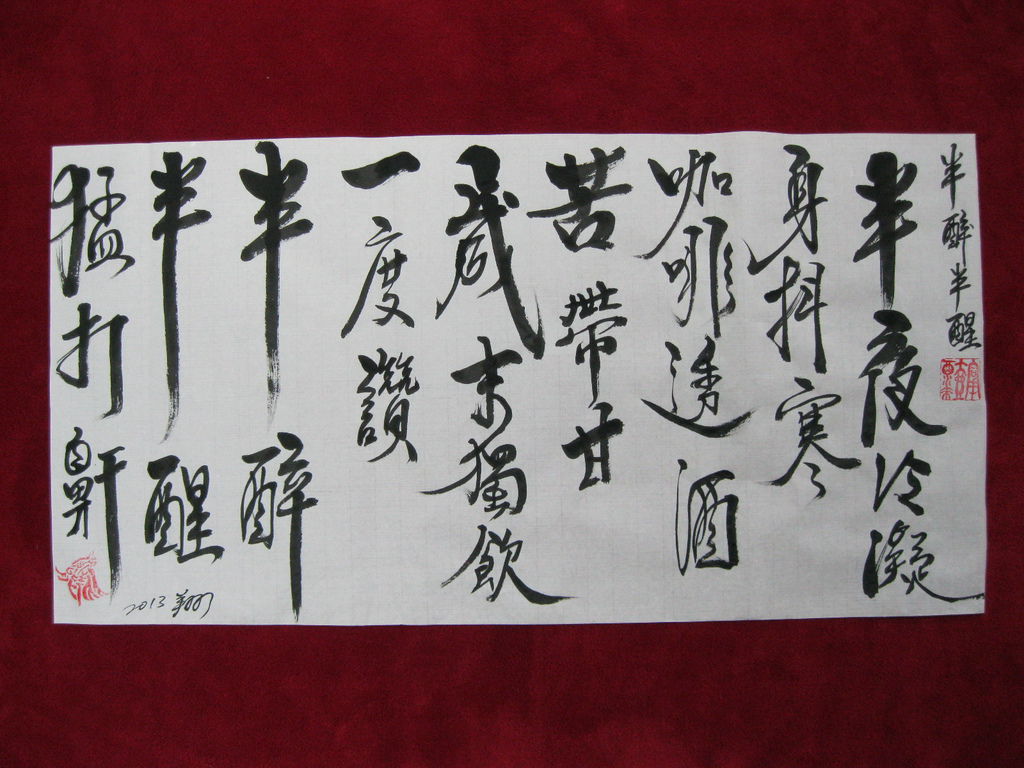 半醉半醒
半夜冷凝
身抖寒
咖啡透酒
苦帶甘
歲末獨飲
一度讚
半醉
半醒
猛打鼾
2013 翔